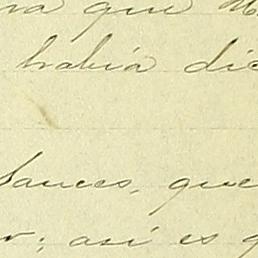 que
habia dic
Sauces, que
; así es q